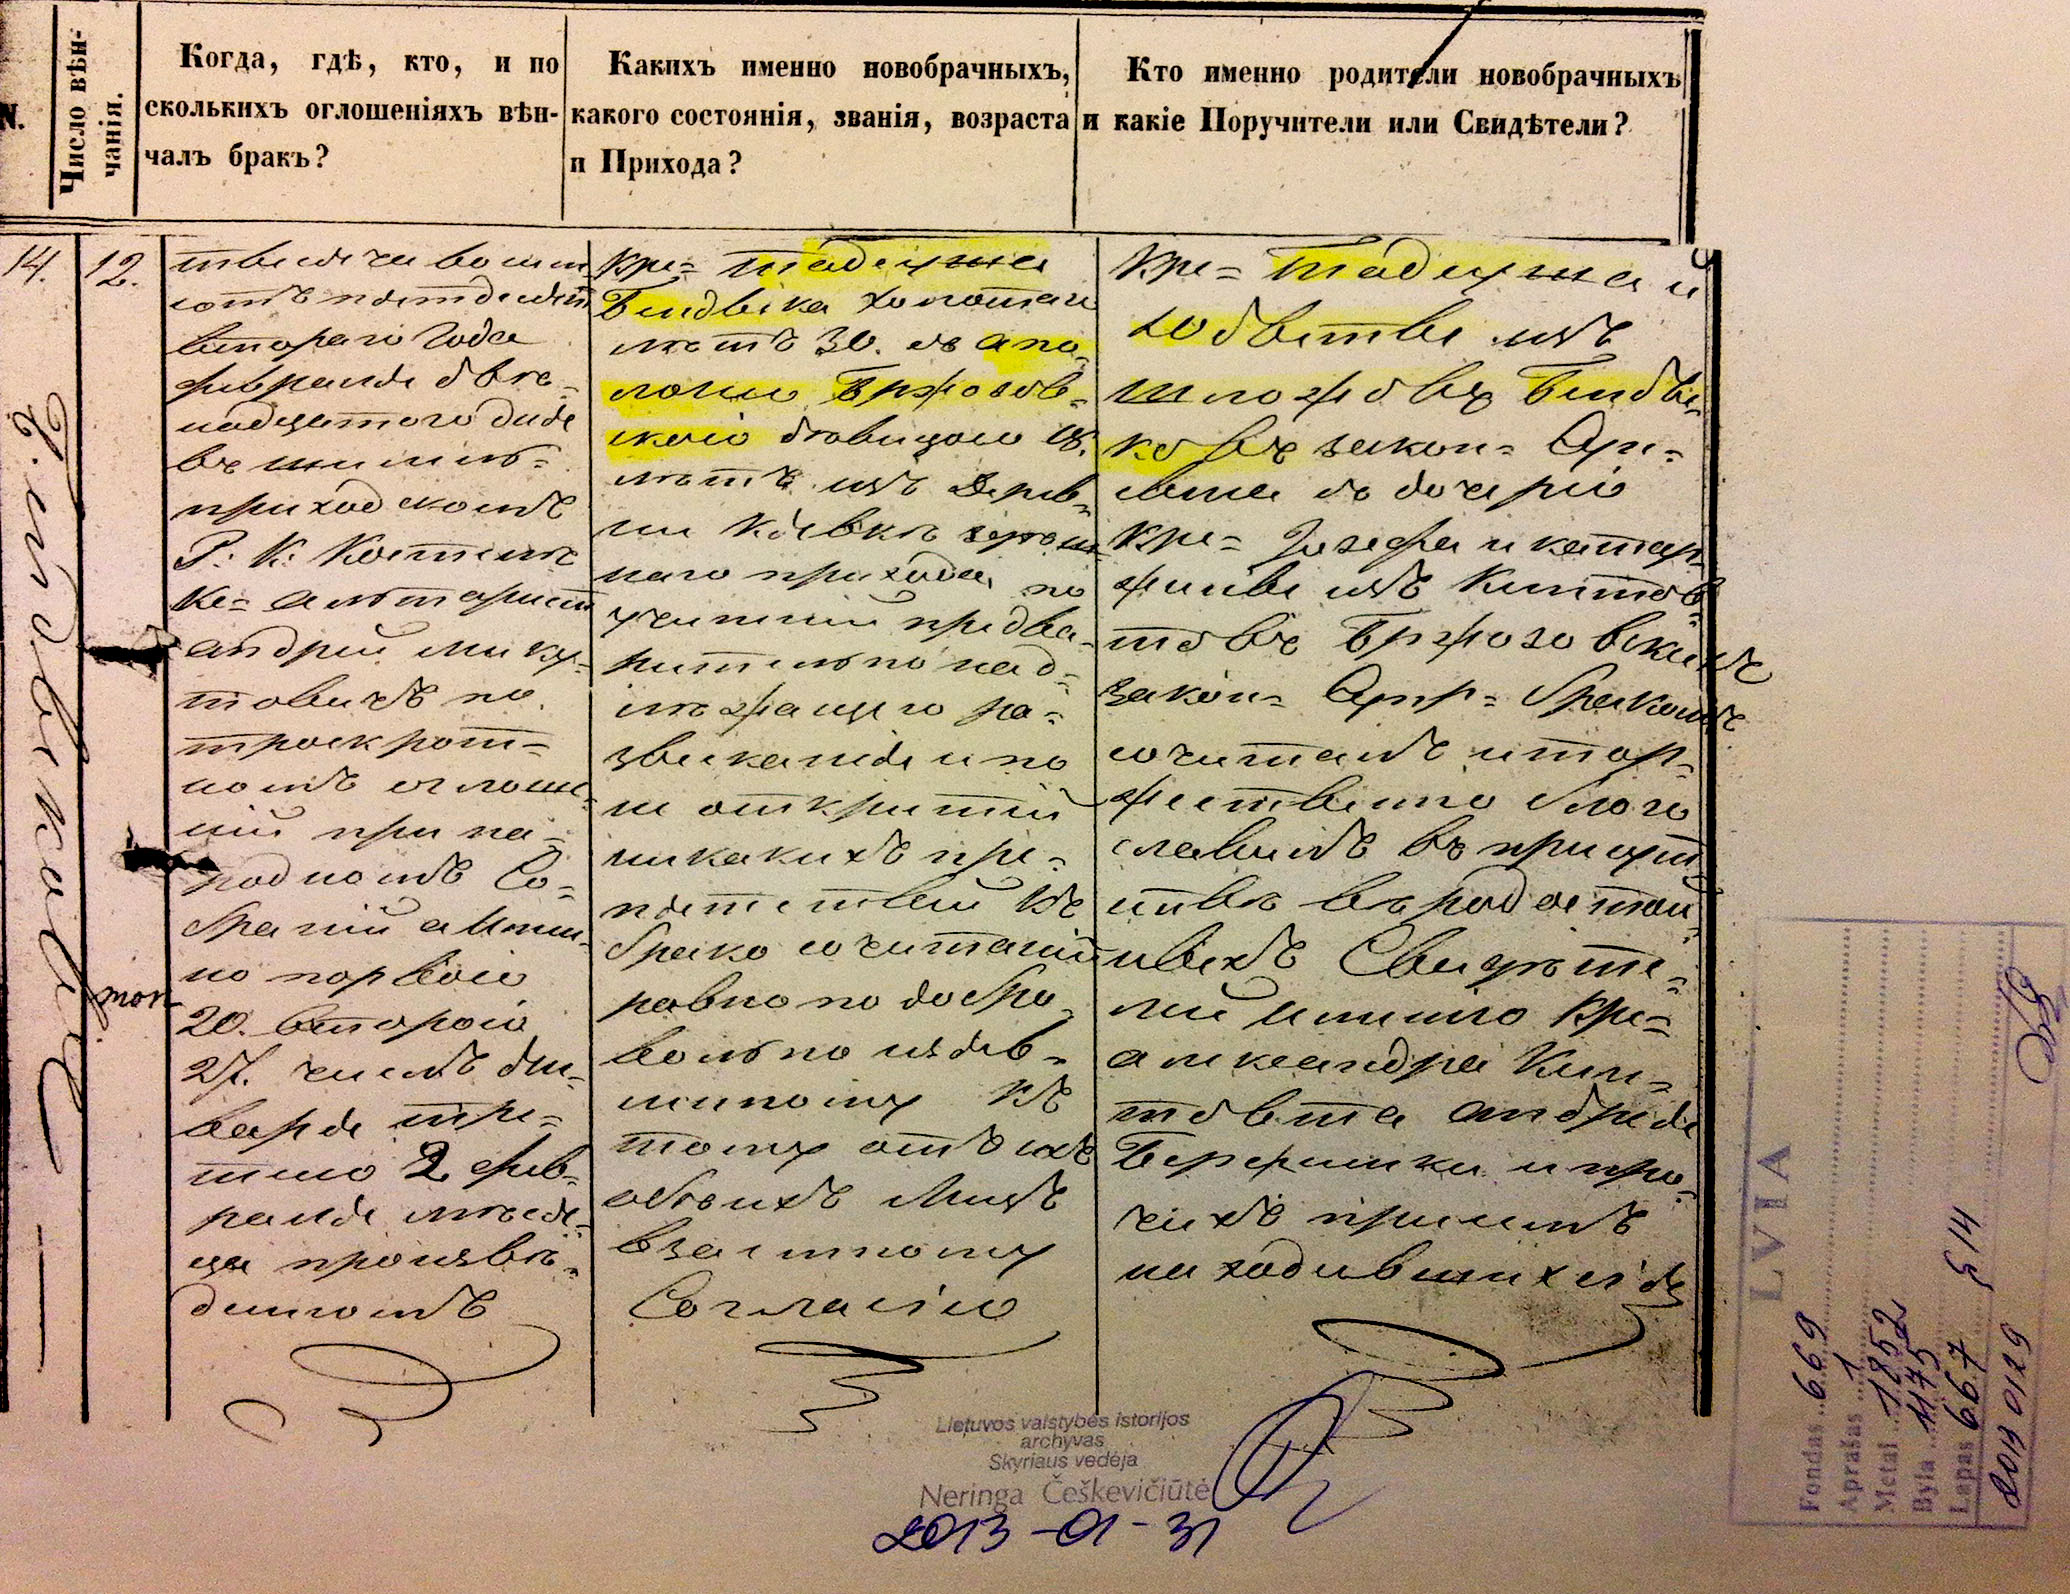 N.
Число вѣн-
чанія.
Когда, гдѣ, кто, и по
сколькихъ оглошеніяхъ вѣн-
чалъ бракъ?
Какихъ именно новобрачныхъ,
какого состоянія, званія, возраста
и Прихода?
Кто именно родители новобрачныхъ
и какіе Поручители или Свидѣтели?
14.
12.
тысяча восем
сотъ пятдесят
втораго Года
февраля двѣ-
надцатого дня
въ
приходскомъ
Р: К: Костелѣ
Кс= альтарист
андрей Мику-
товичъ по
троекрот-
номъ оглоше-
ній при на-
родномъ Со-
браній а Имен-
но первою
20. второю
27. числъ Ян-
варя тре-
тею 2 фев-
раля мѣся-
ца произве-
деномъ
Кре= Тадеуша
холостаго
лѣтъ 30. съ апо-
лонію Бржозов-
скою дѣвицою 18.
лѣтъ изъ Дерев-
ни
наго прихода по
учиненій предва-
рительно над-
лежащего ра-
зысканія и по
не открытій
никакихъ пре-
пятствій Къ
брако сочитаній
равно по добро
вольно изъяв-
ленному Къ
тому отъ ихъ
обѣихъ Лицъ
взаимному
Согласію
Кре= Тадеуша и
изъ
закон=
съ дочерію
Кре= Іозефа и катар
жины изъ Кинтов-
товъ Бржозовскихъ
закон= бракомъ
сочиталъ и тор-
жественно благо
славилъ въ присут
ствѣ вѣродостой
ныхъ Свидѣте-
лей Именно Кре=
александра Кин-
товта андрея
и про-
чихъ при семъ
находившихся
Lietuvos valstybės istorijos
archyvas
Skyriaus vedėja
Neringa Češkevičiūtė
2013-01-31
LVIA
Fondas 669
Aprašas 1
Metai 1852
Byla 1175
Lapas 667 §14
2013 0129